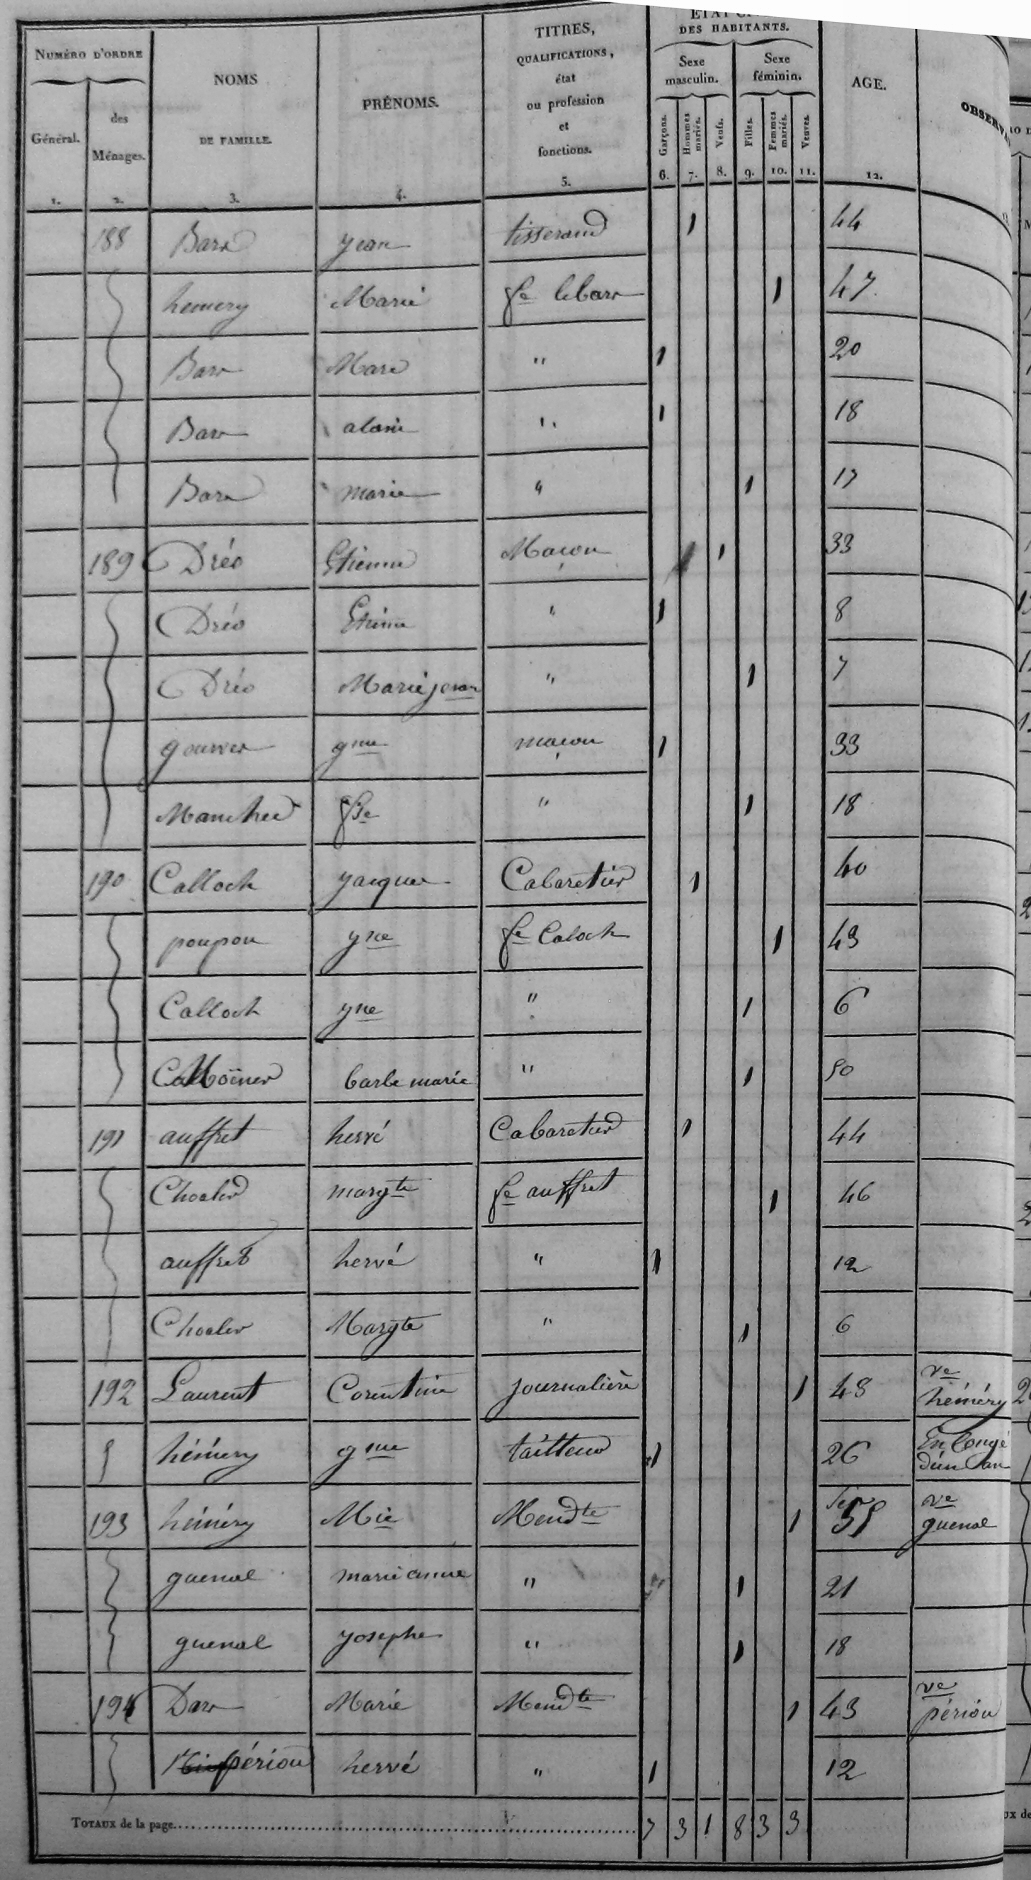 NUMÉRO D'ORDRE
Général.
des Ménages.
NOMS
DE FAMILLE.
PRÉNOMS.
TITRES,
QUALIFICATIONS,
état
ou profession
et
fonctions.
DES HABITANTS.
Sexe masculin.
Sexe féminin.
Garçons.
Hommes mariés.
Veufs.
Filles.
Femmes mariés.
Veuves.
AGE.
1. 2. 3. 4. 5. 6. 7. 8. 9. 10. 11. 12.
188 Barr yean tisserand 1 44
hemery Marie fe lebarr 1 47
Barr Marc " 1 20
Barr alain " 1 18
Barr marie " 1 17
189 Dréo Etienne Macon 1 33
Dréo Etienne " 1 8
Dréo Marie jean " 1 7
gourver gme macon 1 33
Manchec fse " 1 18
190 Calloch yacques Cabaretier 1 40
poupon yne fe Caloch 1 43
Calloch yne " 1 6
barbe marie " 1 50
191 auffret hervé Cabaretier 1 44
Choaler margte fe auffret 1 46
auffret hervé " 1 12
Choaler Margte " 1 6
192 Laurent Corentine journalière 1 48 ve héméry
héméry gme tailleur 1 26 En Congé d'un an
193 héméry Mie Mendte 1 51 ve guenal
guenal marie anne " 1 21
guenal yosephe " 1 18
194 Darr Marie Mendte 1 43 ve périou
périou hervé " 1 12
TOTAUX de la page 7 3 1 8 3 3